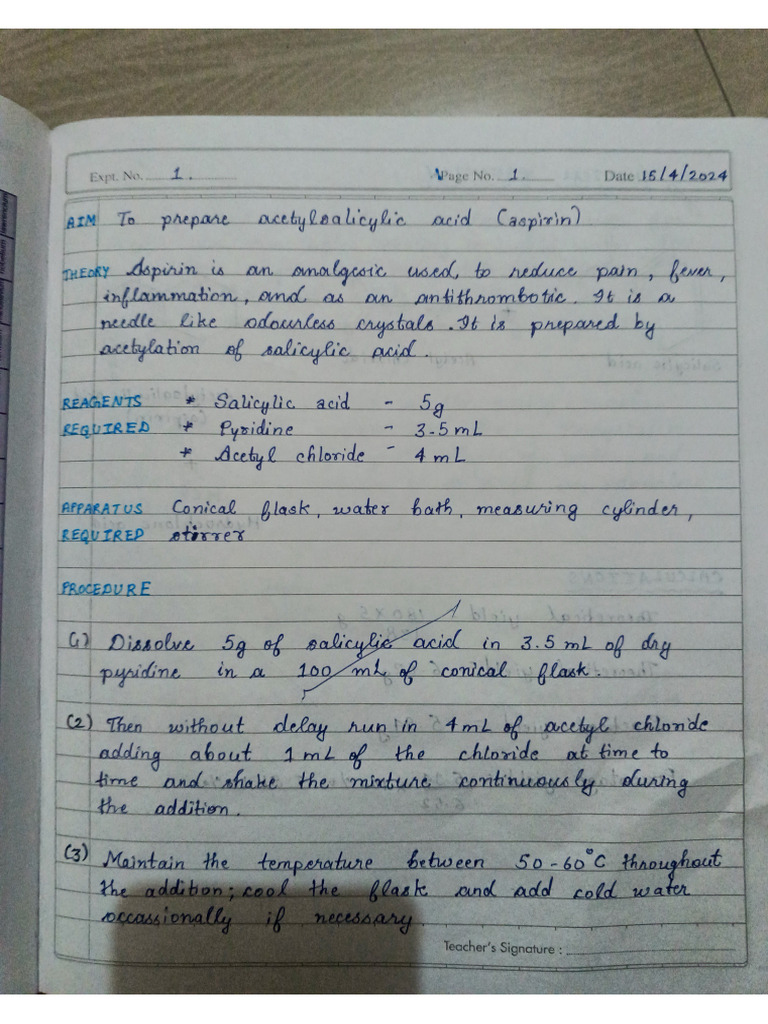 Expt. No. 1. Page No. 1. Date 15/4/2024
AIM To prepare acetylsalicylic acid (aspirin)
THEORY Aspirin is an analgesic used, to reduce pain, fever,
inflammation, and as an antithrombotic. It is a
needle like odourless crystals. It is prepared by
acetylation of salicylic acid.
REAGENTS * Salicylic acid - 5g
REQUIRED * Pyridine - 3.5 mL
* Acetyl chloride - 4 mL
APPARATUS Conical flask, water bath, measuring cylinder,
REQUIRED stirrer
PROCEDURE
(1) Dissolve 5g of salicylic acid in 3.5 mL of dry
pyridine in a 100 mL of conical flask.
(2) Then without delay run in 4 mL of acetyl chloride
adding about 1 mL of the chloride at time to
time and shake the mixture continuously during
the addition.
(3) Maintain the temperature between 50-60°C throughout
the addition; cool the flask and add cold water
occassionally if necessary.
Teacher's Signature :